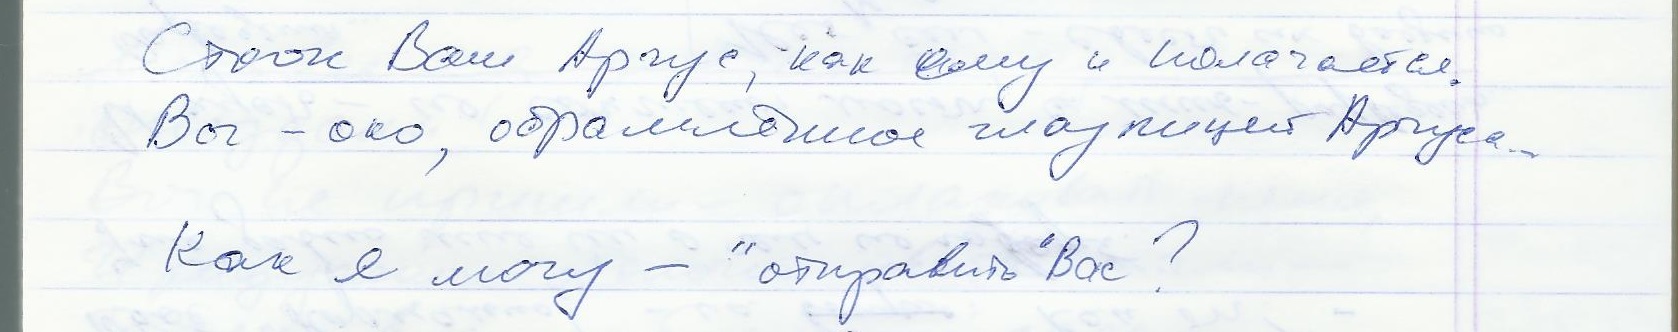 Стоок Ваш Аргус, как ому и полагается.
Вы - око, обрамлённое глазницей Аргуса...
Как я могу - "отправить" Вас?